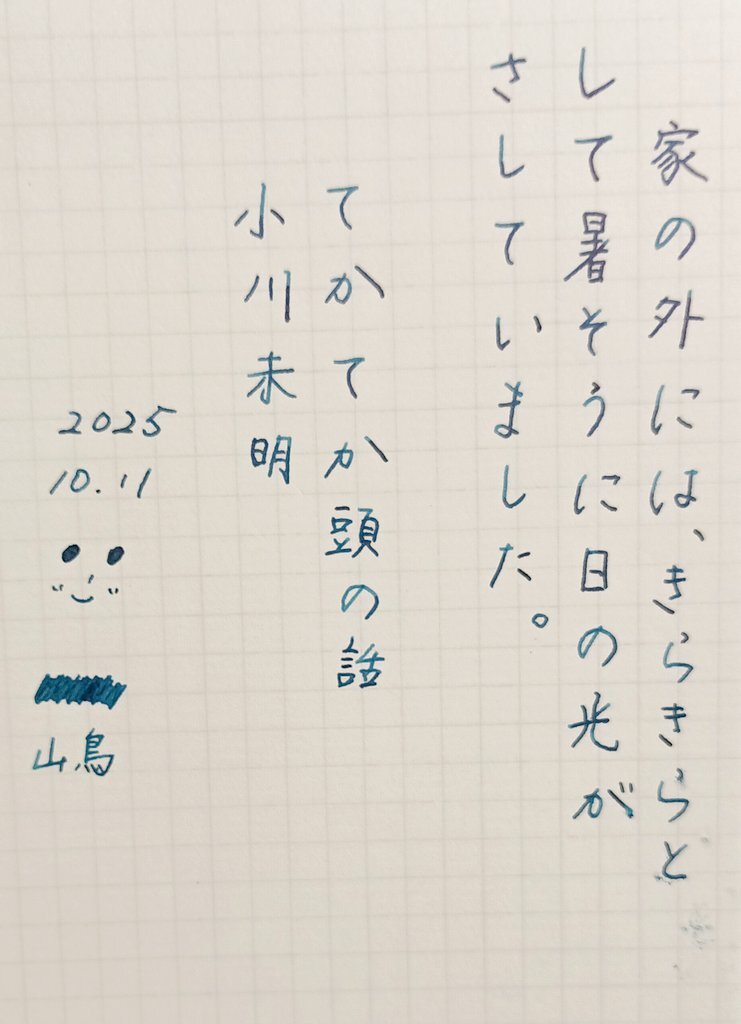 家の外には、きらきらと
して暑そうに日の光が
さしていました。
てかてか頭の話
小川未明
2025
10.11
山鳥